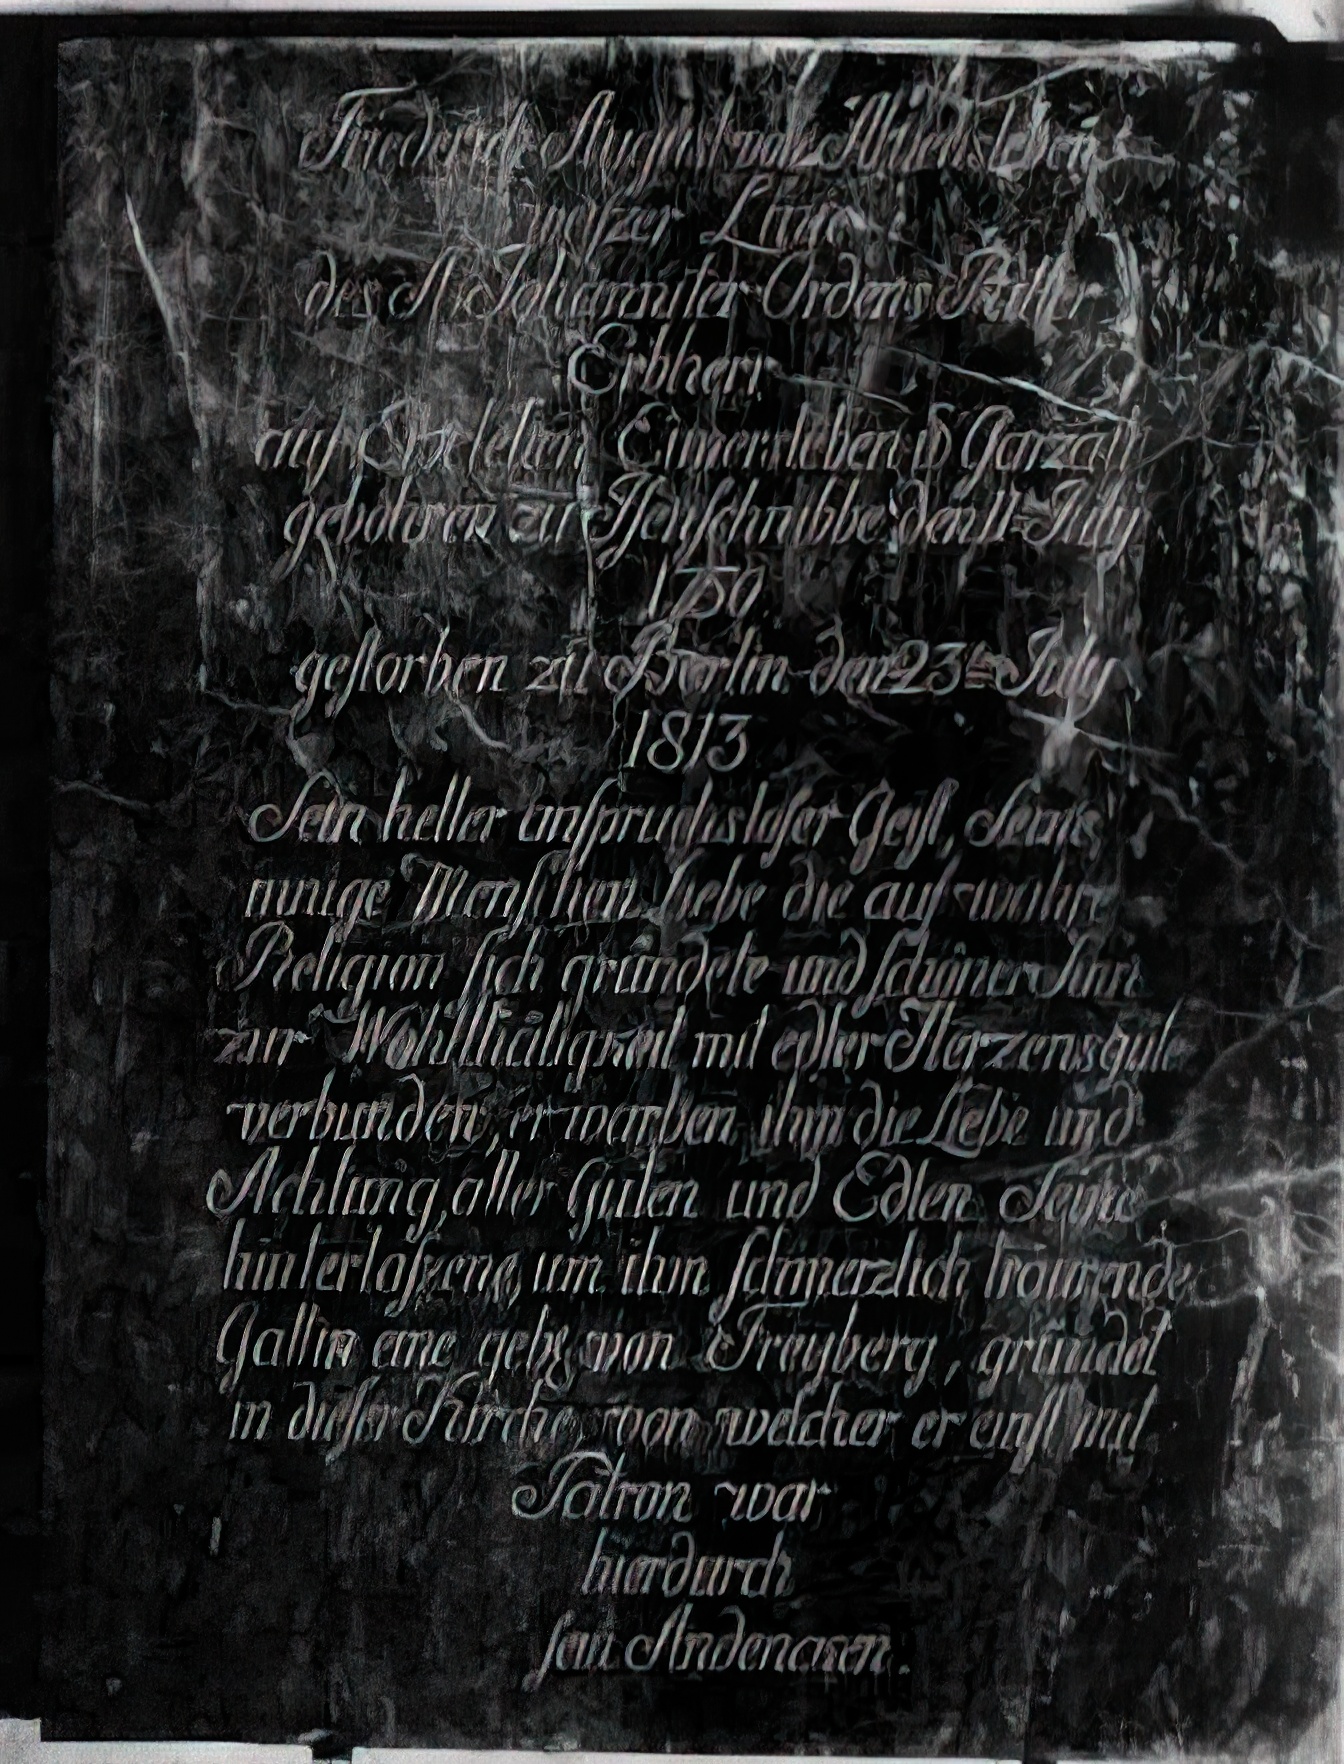 Friederich August von Alvensleben
weiſzer Linie
des St Johanniter Ordens Ritter
Erbherr
auf Eimersleben
gebohren zu Iſenſchnibbe den 11ten July
geſtorben zu Berlin den 23ten July
1813
Sein heller anſpruchsloſer Geiſt, Seine
innige Menſchen Liebe die auf wahre
Religion ſich gründete und ſchöner Sinn
zur Wohlthätigkeit mit edler Herzensgüte
verbunden, erwarben ihm die Liebe und
Achtung aller Guten und Edlen Seine
hinterlaſzene, um ihn ſchmerzlich traurende
Gattin eine geb: von Freyberg, gründet
in dieſer Kirche, von welcher er einſt mit
Patron war
hierdurch
ſein Andencken.